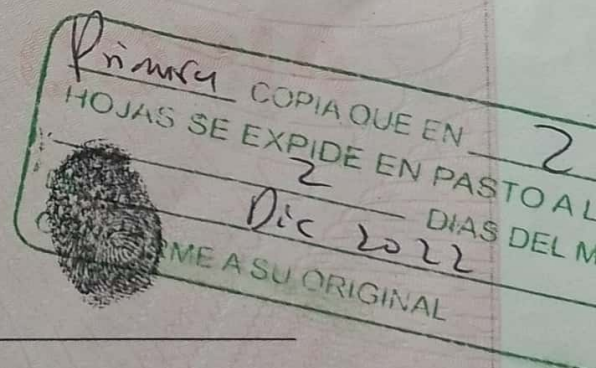 Primera COPIA QUE EN 2
HOJAS SE EXPIDE EN PASTO A L
2 DIAS DEL M
Dic 2022
ME A SU ORIGINAL